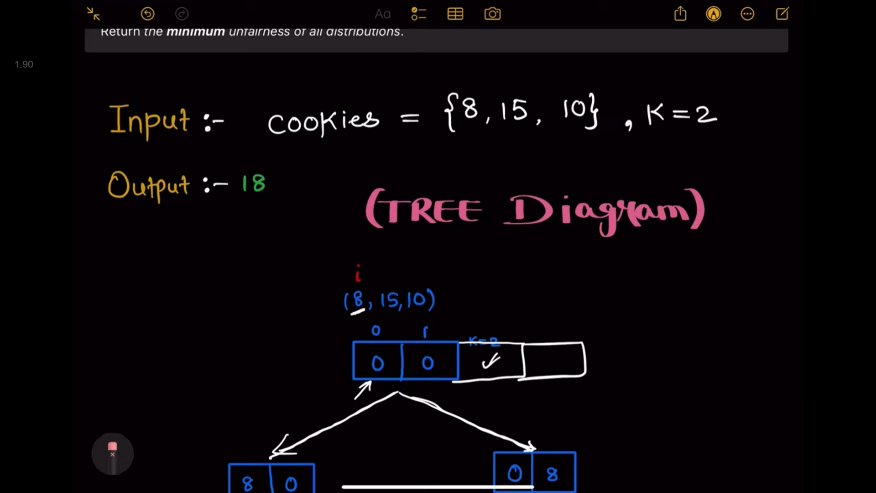 Aa
Return the minimum unfairness of all distributions.
1.90
Input :- cookies = {8, 15, 10}, K=2
Output :- 18
(TREE Diagram)
i
(8, 15, 10)
0 1
K=2
0 0
8 0
0 8